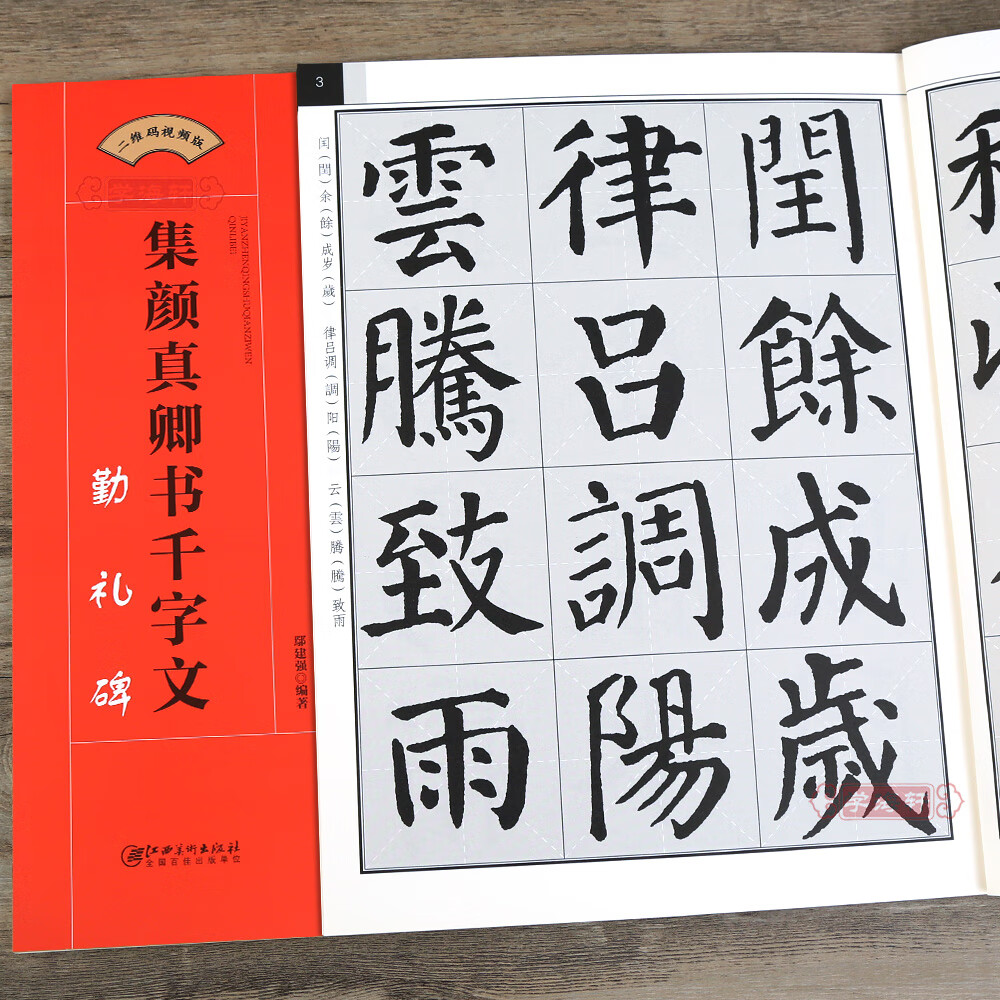 二维码视频版
学海轩
集颜真卿书千字文
勤礼碑
JIYANZHENQINGSHUQIANZIWEN
QINLIBEI
鄢建强◎编著
江西美术出版社
全国百佳出版单位
3
闰餘成歲
律吕調陽
雲騰致雨
闰（閏）余（餘）成岁（歲） 律吕调（調）阳（陽） 云（雲）腾（騰）致雨
学海轩